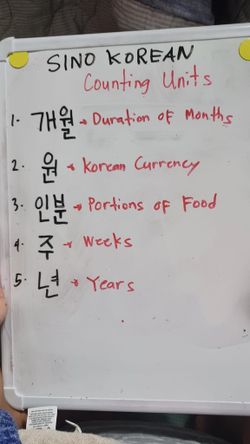 SINO KOREAN
Counting Units
1- 개월 → Duration of Months
2. 원 → Korean Currency
3. 인분 → Portions of Food
4. 주 → Weeks
5. 년 → Years